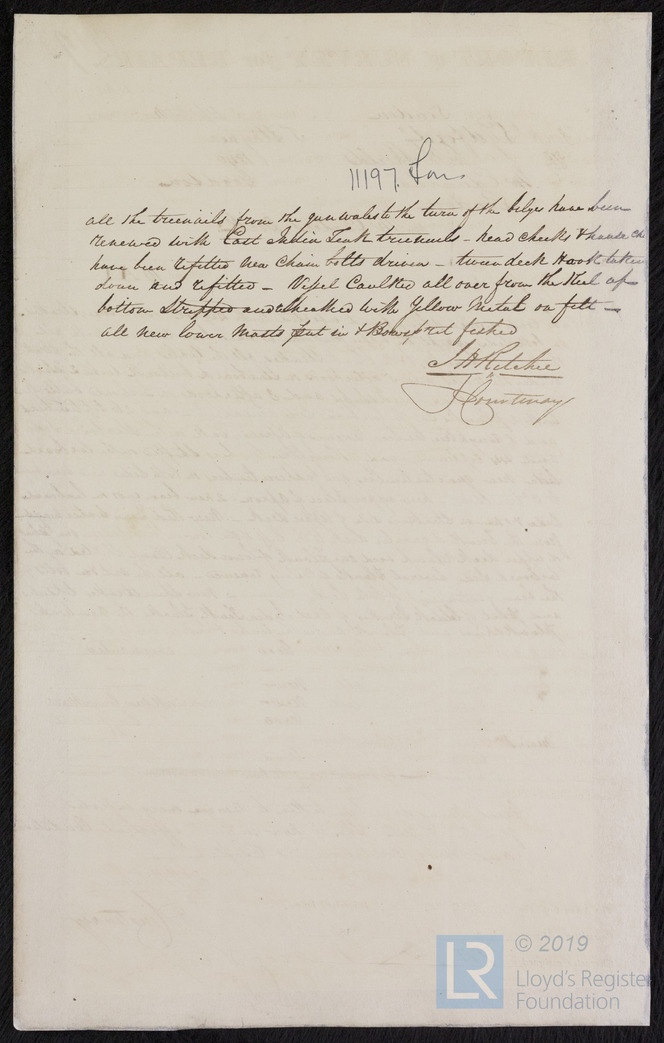 11197. Lon
all the treenails from the gunwales to the turn of the bilges have been
renewed with East India Teak treenails – head cheeks & hawse
have been refitted new Chain bolts driven – tween deck Hook taken
down and refitted – Vessel Caulked all over from the Keel up
bottom Stripped and sheathed with Yellow Metal on felt –
all new lower Masts put in & Bowsprit fished
J H Ritchie
J Courtenay
LR © 2019
Lloyd's Register
Foundation